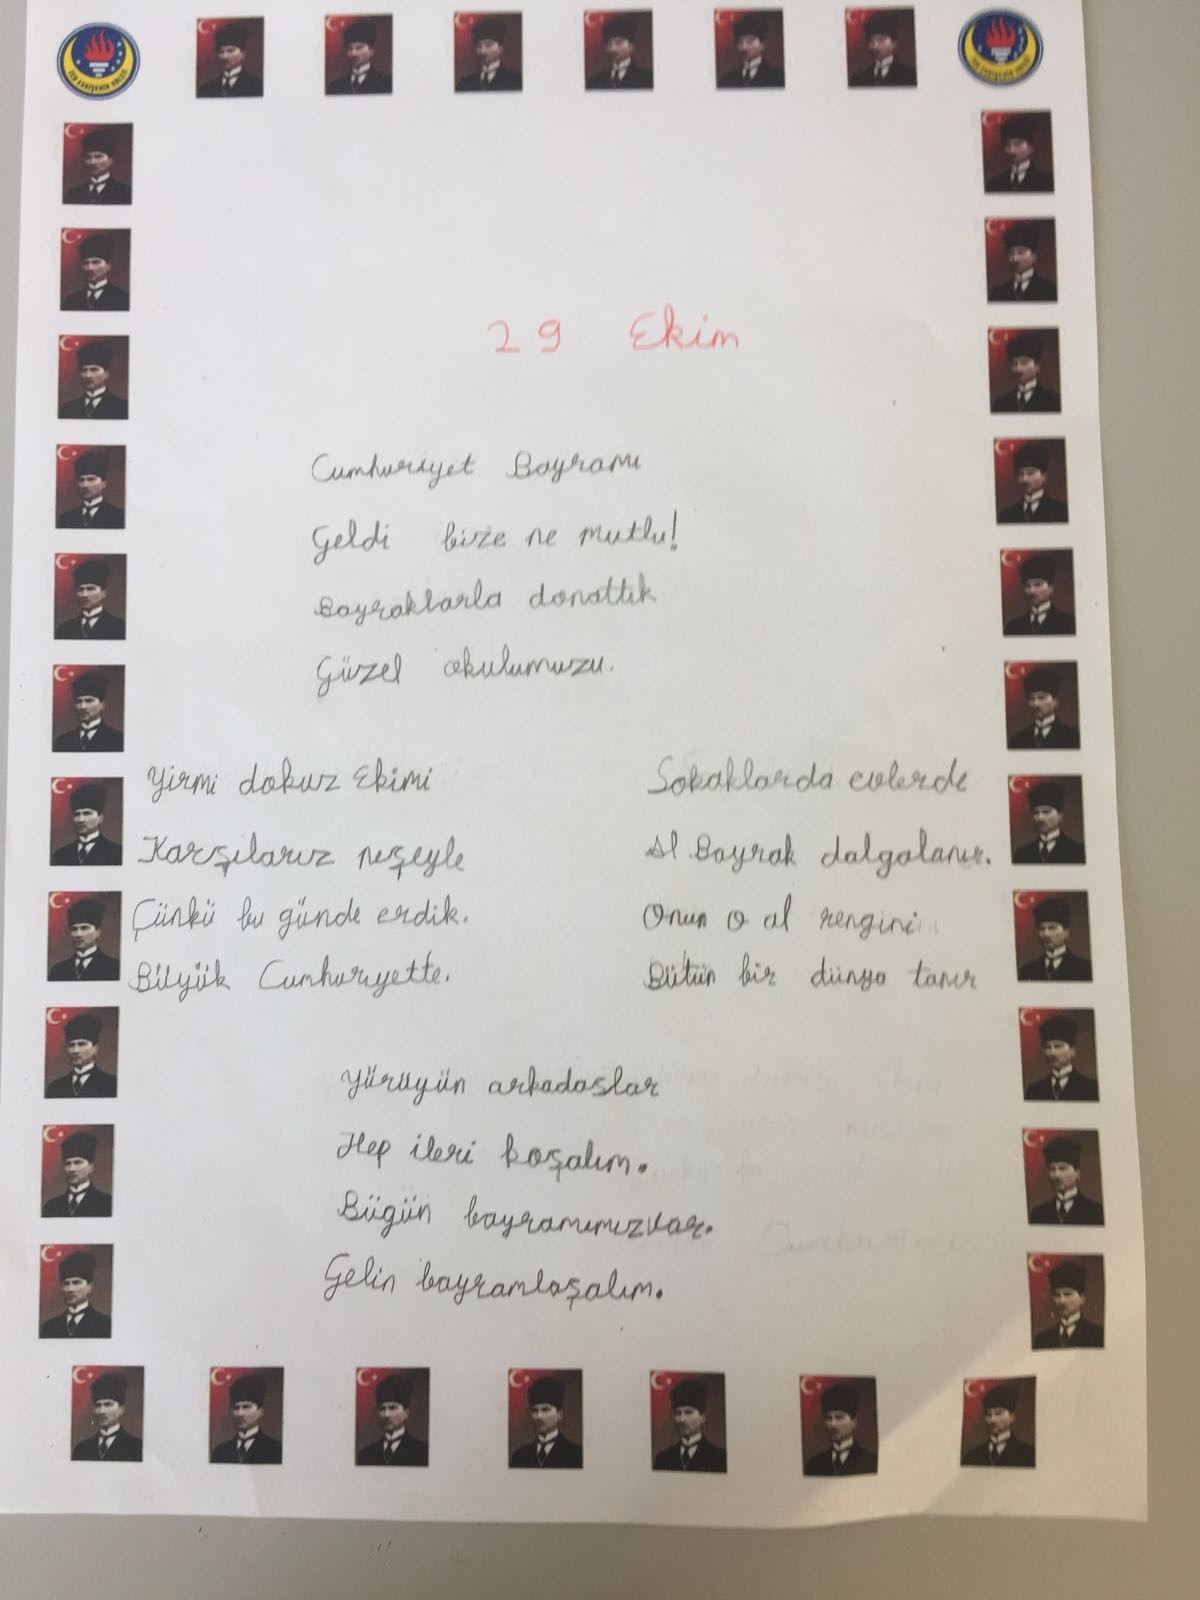 29 Ekim
Cumhuriyet Bayramı
Geldi bize ne mutlu!
Bayraklarla donattık
Güzel okulumuzu.
Yirmi dokuz Ekimi
Karşılarız neşeyle
Çünkü bu günde erdik.
Büyük Cumhuriyette.
Sokaklarda evlerde
Al Bayrak dalgalanır.
Onun o al rengini
Bütün bir dünya tanır
Yürüyün arkadaşlar
Hep ileri koşalım.
Bügün bayramımızvar.
Gelin bayramlaşalım.